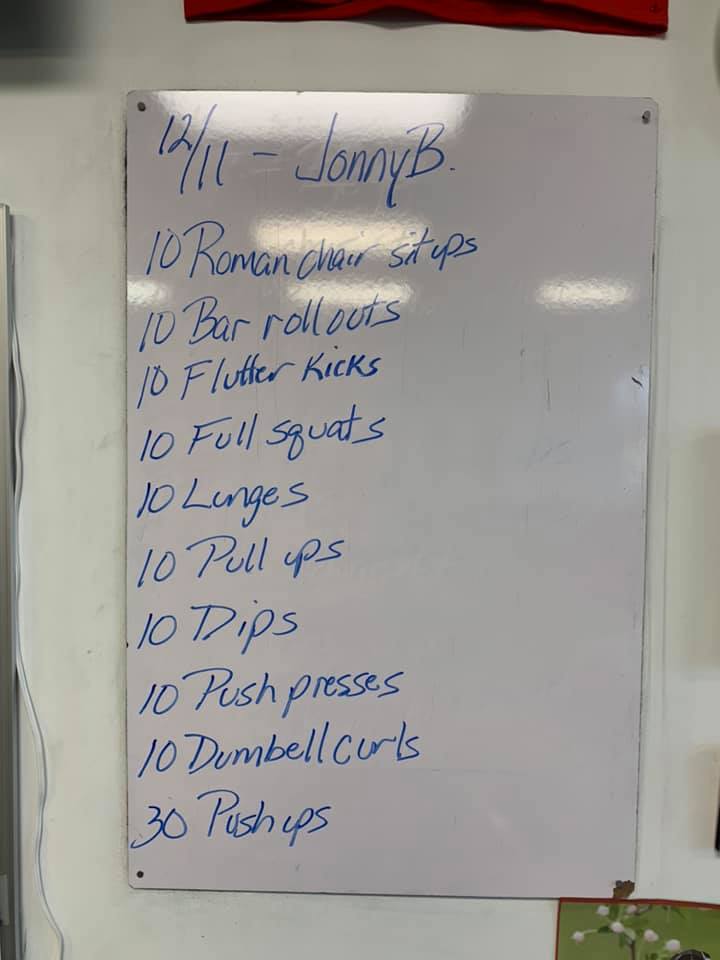 12/11 - JonnyB.
10 Roman chair situps
10 Bar rollouts
10 Flutter Kicks
10 Full squats
10 Lunges
10 Pull ups
10 Dips
10 Push presses
10 Dumbell curls
30 Pushups